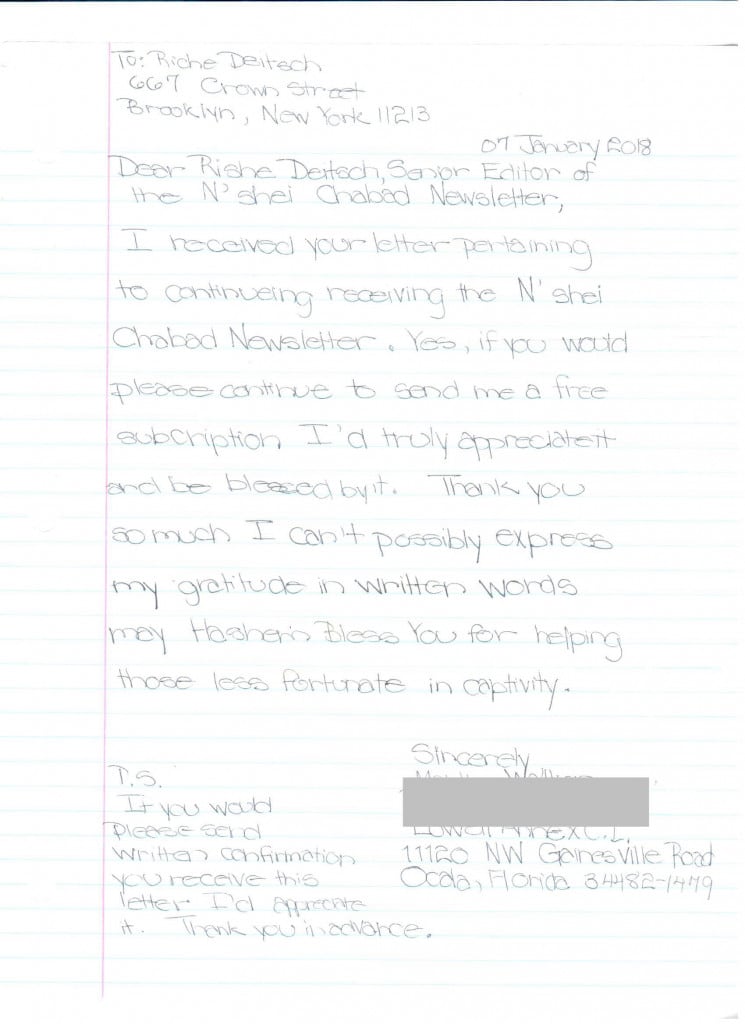 To: Riche Deitsch
667 Crown Street
Brooklyn, New York 11213
07 January 2018
Dear Rishe Deitsch, Senior Editor of
the N'shei Chabad Newsletter,
I received your letter pertaining
to continueing receiving the N'shei
Chabad Newsletter. Yes, if you would
please continue to send me a free
subcription I'd truly appreciate it
and be blessed by it. Thank you
so much I can't possibly express
my gratitude in written words
may Hashem's Bless You for helping
those less fortunate in captivity.
Sincerely
Lowell Annex C.I.
11120 NW Gainesville Road
Ocala, Florida 34482-1479
P.S.
If you would
please send
written confirmation
you receive this
letter I'd appreciate
it. Thank you in advance.